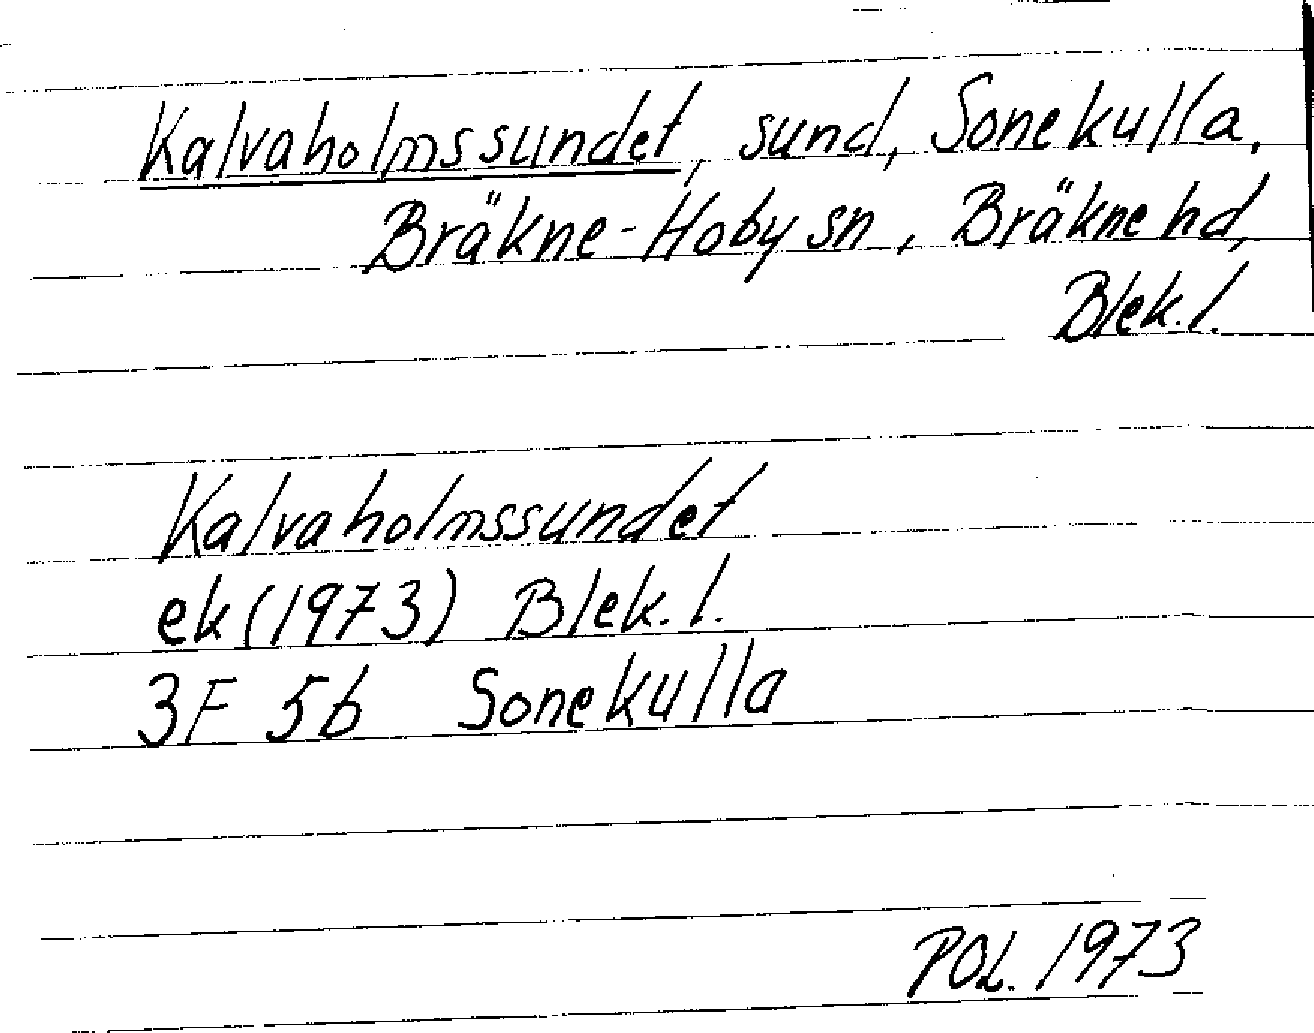 Kalvaholmssundet, sund, Sonekulla,
Bräkne-Hoby sn, Bräkne hd,
Blek.l.
Kalvaholmssundet
ek (1973) Blek.l.
3F 5b Sonekulla
POL. 1973